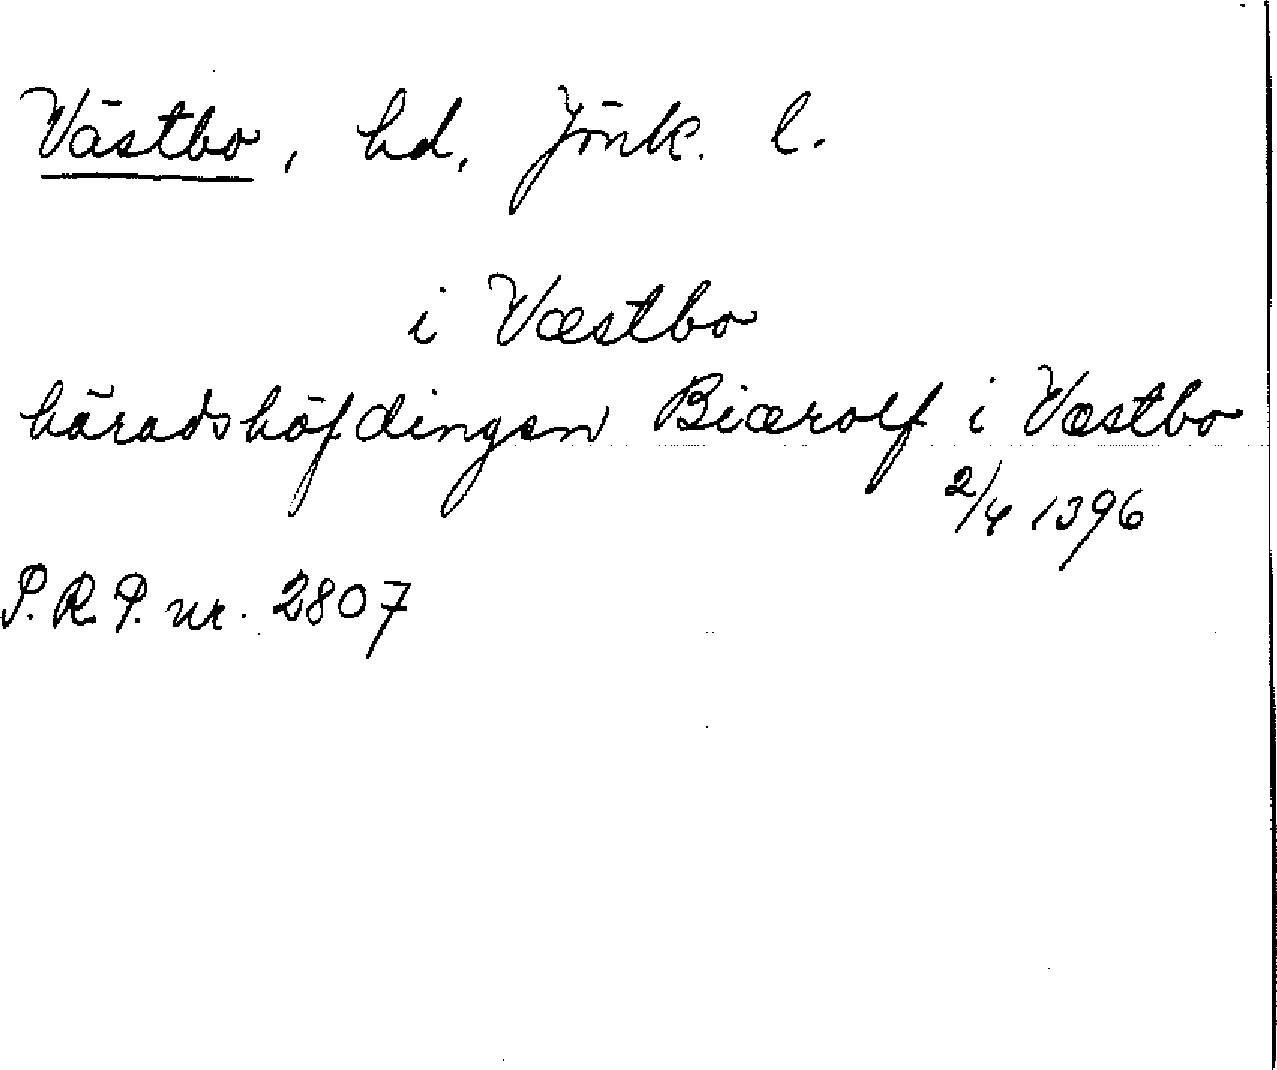 Västbo, hd. Jönk. l.
i Væstbo
häradshöfdingen Biærolf i Væstbo
2/4 1396
P.R.P. nr. 2807